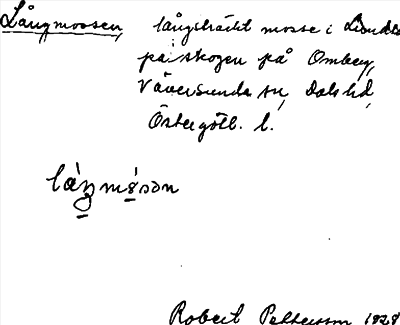 Långmossen, långsträckt mosse i
på skogen på Omberg,
Väversunda sn, Dals hd,
Östergötl. l.
Robert Pettersson 1928